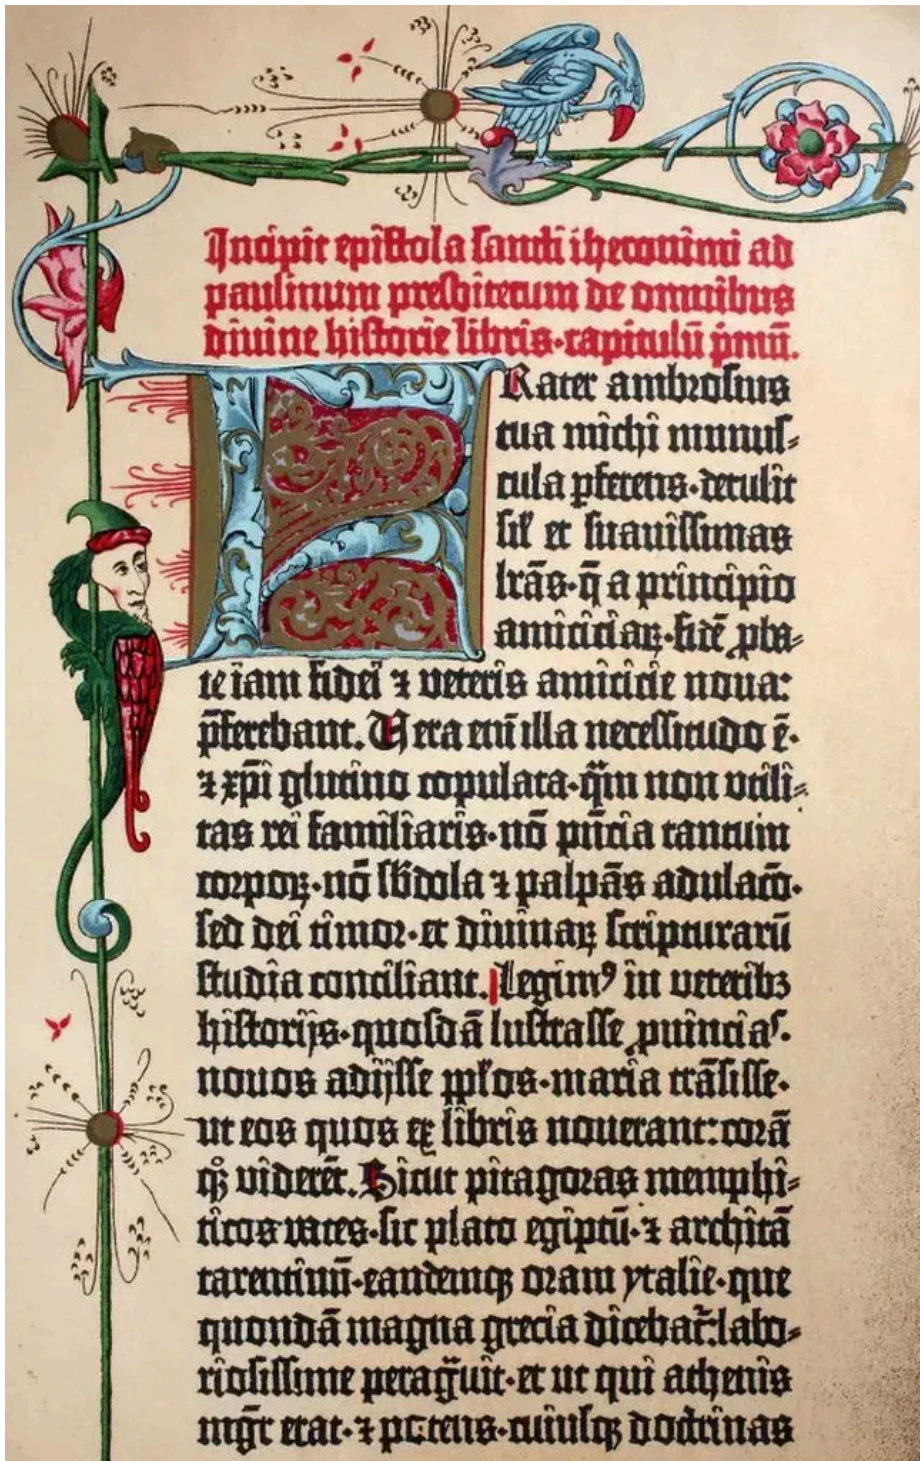 Incipit epistola sancti iheronimi ad
paulinum presbiterum de omnibus
divine historie libris·capitulū p̄mū.
FRater ambrosius
tua michi munus⸗
cula ꝑferens·detulit
sił et suavissimas
lrās·q̄ a principio
amiciciaꝝ·fidē ꝓba⸗
te iam fidei ⁊ veteris amicicie nova:
p̄ferebant. Vera eni̅ illa necessitudo ē·
⁊ xp̄i glutino copulata·q̄m non utili⸗
tas rei familiaris·nō pn̄cia tantum
corpoꝝ·nō sb̄dola ⁊ palpās adulac̄o·
sed dei timor·et divinaꝝ scripturarū
studia conciliant. Legimꝰ in veteribꝫ
historijs·quosdā lustrasse ꝓuincias·
novos adijsse ppłos·maria trāsisse·
ut eos quos ex libris noverant: corā
qꝫ viderēt. Sicut pitagoras memphi⸗
ticos vates·sic plato egiptū·⁊ architā
tarentinū·eandemqꝫ oram ytalie·que
quondā magna grecia dicebat̄: labo⸗
riosissime peragᷓvit·et ut qui athenis
mgr̄ erat·⁊ potens·cuiusqꝫ doctrinas